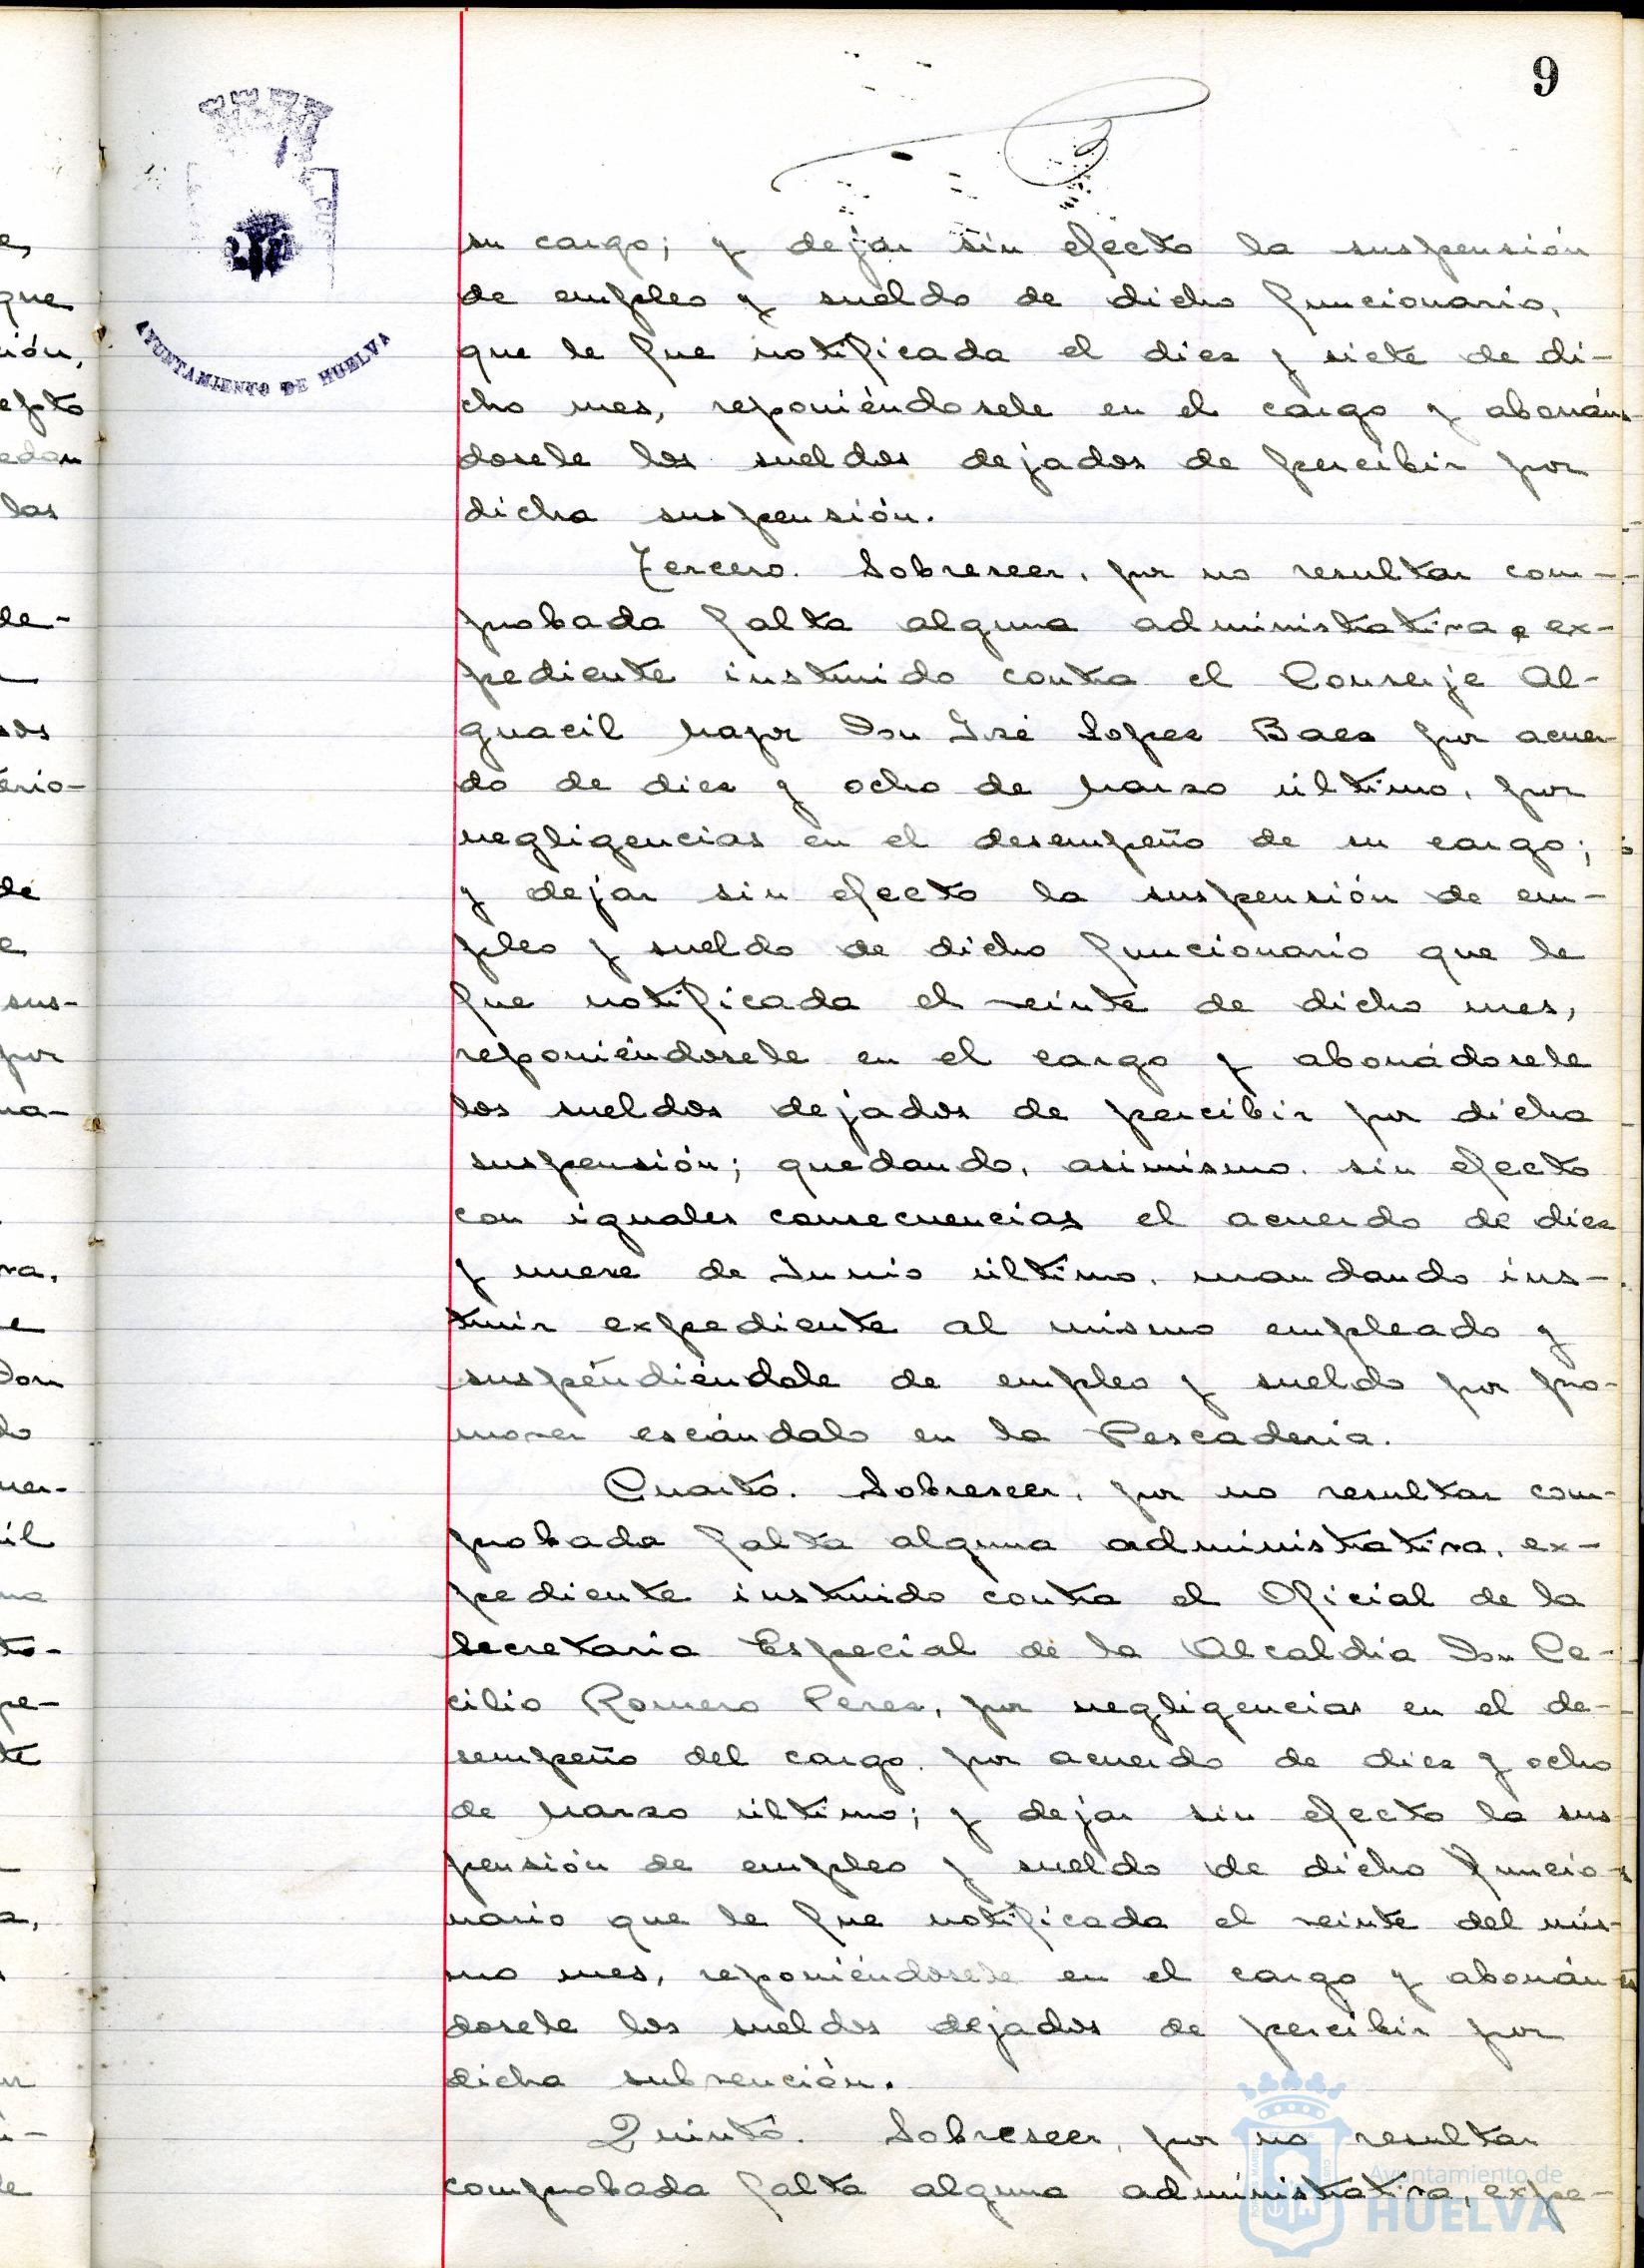 9
AYUNTAMIENTO DE HUELVA
su cargo; y dejar sin efecto la suspensión
de empleo y sueldo de dicho funcionario,
que le fue notificada el diez y siete de di-
cho mes, reponiéndosele en el cargo y abonán-
dosele los sueldos dejados de percibir por
dicha suspensión.
Tercero. Sobreseer, por no resultar com-
probada falta alguna administrativa, ex-
pediente instruido contra el Conserje Al-
guacil Mayor Don José Lopez Baez por acuer
do de diez y ocho de Marzo último, por
negligencias en el desempeño de su cargo;
y dejar sin efecto la suspensión de em-
pleo y sueldo de dicho funcionario que le
fue notificada el veinte de dicho mes,
reponiéndosele en el cargo y abonádosele
los sueldos dejados de percibir por dicha
suspensión; quedando, asimismo, sin efecto
con iguales consecuencias el acuerdo de diez
y nueve de Junio último, mandando ins-
truir expediente al mismo empleado y
suspendiéndole de empleo y sueldo por pro-
mover escándalo en la Pescaderia.
Cuarto. Sobreseer, por no resultar com-
probada falta alguna administrativa, ex-
pediente instruido contra el Oficial de la
Secretaria Especial de la Alcaldia Don Ce-
cilio Romero Perez, por negligencias en el de-
sempeño del cargo, por acuerdo de diez y ocho
de Marzo último; y dejar sin efecto la sus-
pensión de empleo y sueldo de dicho funcio-
nario que le fue notificada el veinte del mis-
mo mes, reponiéndosele en el cargo y abonán-
dosele los sueldos dejados de percibir por
dicha subvención.
Quinto. Sobreseer, por no resultar
comprobada falta alguna administrativa, expe-
Ayuntamiento de
HUELVA